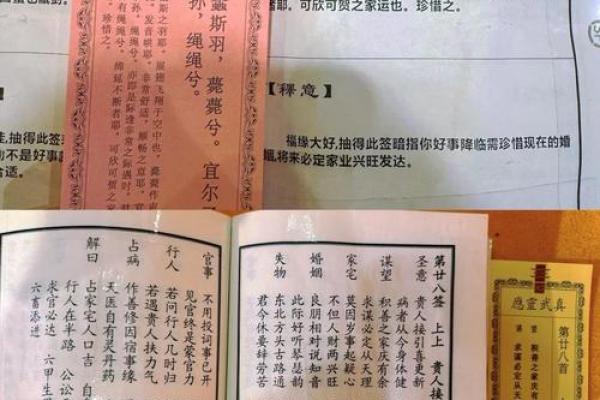 者耶。可欣可贺之家运也。珍惜之。
螽斯羽，薨薨兮。宜尔子
孙，绳绳兮。
斯之羽耶。展翅飞翔于空中也，薨薨作
发音哄耶。非常舒适，顺畅之意耶。宜
孙，绳绳兮。亦即是际逢非常之际遇时，
有绳绳兮。绵延不断者耶。可欣可贺之
珍惜之。
【释意】
福缘大好,抽得此签暗指你好事降临需珍惜现在的婚
姻,将来必定家业兴旺发达。
抽得此
到不是好事
合适。
第廿八签 上上 贵人接
圣意 贵人接引喜更新
病者从今身体健
谋望 积善之家庆有余
求谋必定从天理
家宅 莫因岁事起疑心
不但人财两字兴
婚姻 良朋相对说知音
此际好听琴瑟韵
失物 东北方头古路通
君今休要辞劳苦
官事 不用投词事已开
见官终是蒙官力
行人 若问行人几时归
若遇贵人扶力气
占病 作善修因宿事缘
天医自有灵丹药
解曰 占家宅人口吉 自
行人在半路 公讼
求官必达 六甲生男
六畜添进
真武灵应
第廿八首
积善之家庆有
求谋必定从天